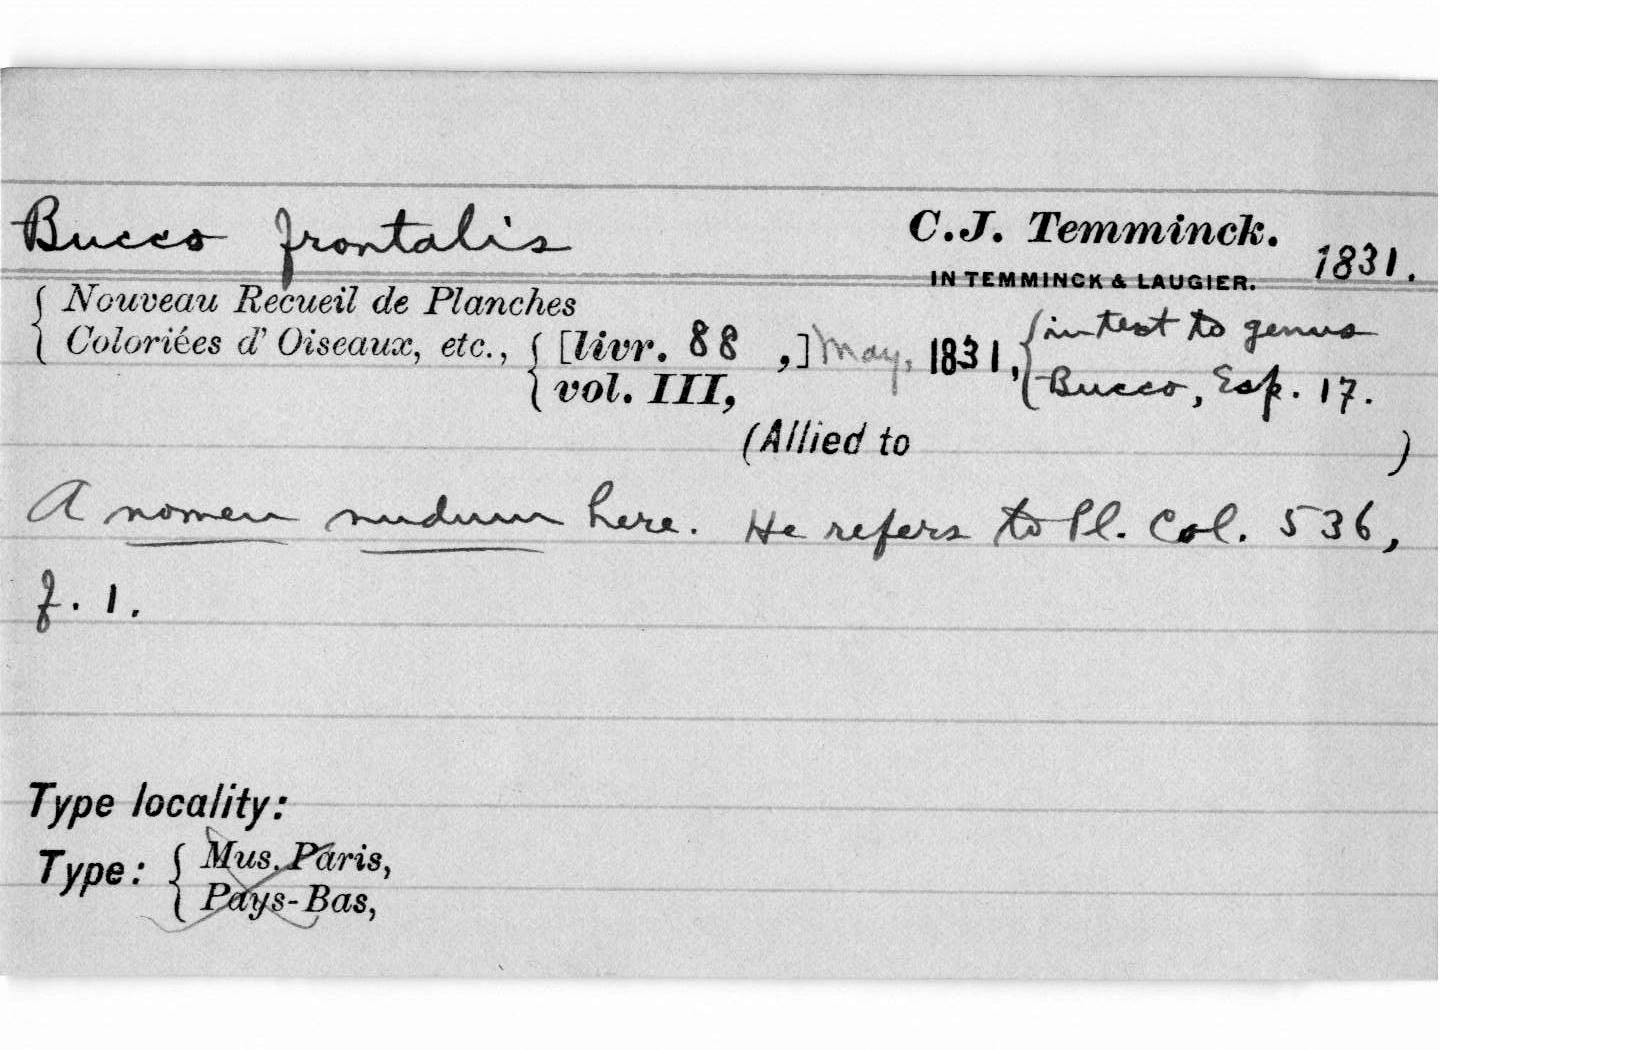 Bucco frontalis
C.J. Temminck.
IN TEMMINCK & LAUGIER. 1831.
{ Nouveau Recueil de Planches
Coloriées d' Oiseaux, etc., { [livr. 88 ,] May, 1831, { in text to genus
vol. III, Bucco, Esp. 17.
(Allied to )
A nomen nudum here. He refers to Pl. Col. 536,
f. 1.
Type locality:
Type: { Mus. Paris,
Pays-Bas,